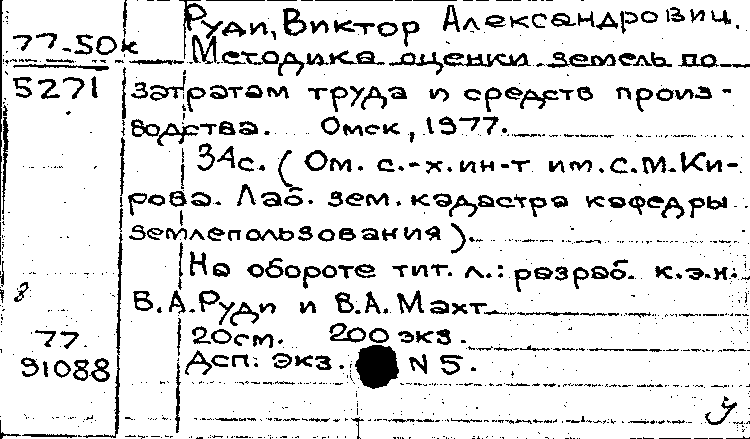 Руди, Виктор Александрович.
77-50к Методика оценки земель по
5271 затратам труда и средств произ-
водства. Омск, 1977.
34с. (Ом. с.-х. ин-т им. С.М. Ки-
рова. Лаб. зем. кадастра кафедры
землепользования).
На обороте тит. л.: разраб. к.э.н.
8 В.А. Руди и В.А. Махт
77 20см. 200 экз.
91088 Дсп: экз. N 5.
у